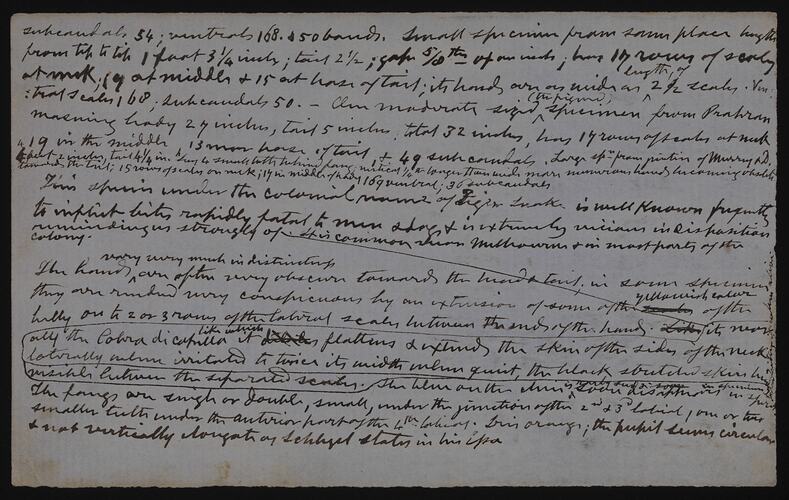 subcaudals 54; ventrals 168. & 50 bands. Small specimen from same place length
from tip to tip 1 foot 3 1/4 inches; tail 2 1/2; gape 5/8ths of an inch; has 17 rows of scales
at neck, 19 at middle & 15 at base of tail; its bands are as wide as length of 2 1/2 scales. Ven-
tral scales 168, subcaudals 50. – One moderate sized (the figured) specimen from Prahran
measuring body 27 inches, tail 5 inches, total 32 inches, has 17 rows of scales at neck
19 in the middle 13 near base of tail 49 subcaudals. Large spn from junction of Murray &
4 feet 2 inches, tail 4 1/4 in. 4 small teeth behind fang, vertical longer than wide more numerous bands becoming obsolete
towards the tail; 15 rows of scales on neck; 19 in middle of body 169 ventral; 36 subcaudals
This species under the colonial name of Tiger Snake is well known frequently
to inflict bites rapidly fatal to men & dogs & is extremely vicious in disposition
reminding us strongly of It is common near Melbourne & in most parts of the
colony.
vary very much in distinctness
The bands are often very obscure towards the head & tail, in some specimens
they are rendered very conspicuous by an extension of some of the yellowish color of the
belly on to 2 or 3 rows of the lateral scales between the ends of the bands. Like its near
ally the Cobra di capella like which it flattens & extends the skin of the sides of the neck
laterally when irritated to twice its width when quiet, the black stretched skin being
visible between the separated scales. The blue on the chin soon disappears in spirit
The fangs are single or double, small, under the junction of the 2d & 3d labial, one or two
smaller teeth under the anterior part of the 4th labial. Iris orange; the pupil seems circular
& not vertically elongate as Schlegel states in his